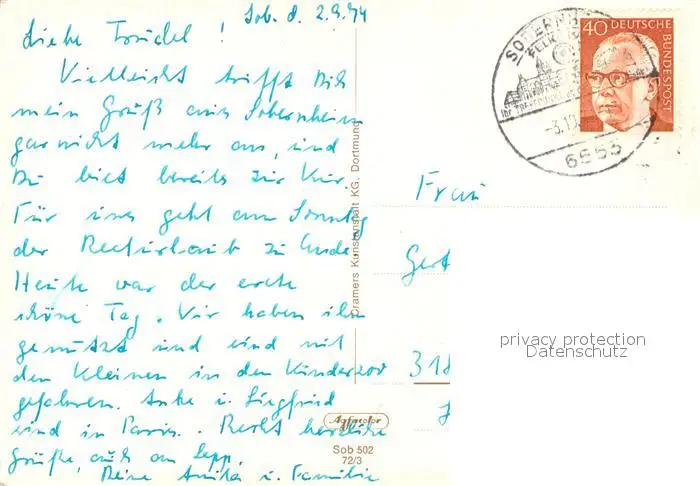 Sob. d. 2.9.74
Liebe Trudel !
Vielleicht trifft Dich
mein Gruß aus Sobernheim
gar nicht mehr an, und
Du bist bereits zur Kur.
Für uns geht am Sonntag
der Resturlaub zu Ende
Heute war der erste
schöne Tag. Wir haben ihn
genützt und sind mit
den Kleinen in den Kinderzoo
gefahren. Anke u. Siegfried
sind in Paris. Recht herzliche
Grüße, auch an Sepp.
Deine Anita u. Familie
Cramers Kunstanstalt KG. Dortmund
Sob 502
72/3
40 DEUTSCHE BUNDESPOST
SOBERNHEIM
6553
Frau
Gert
318
privacy protection
Datenschutz